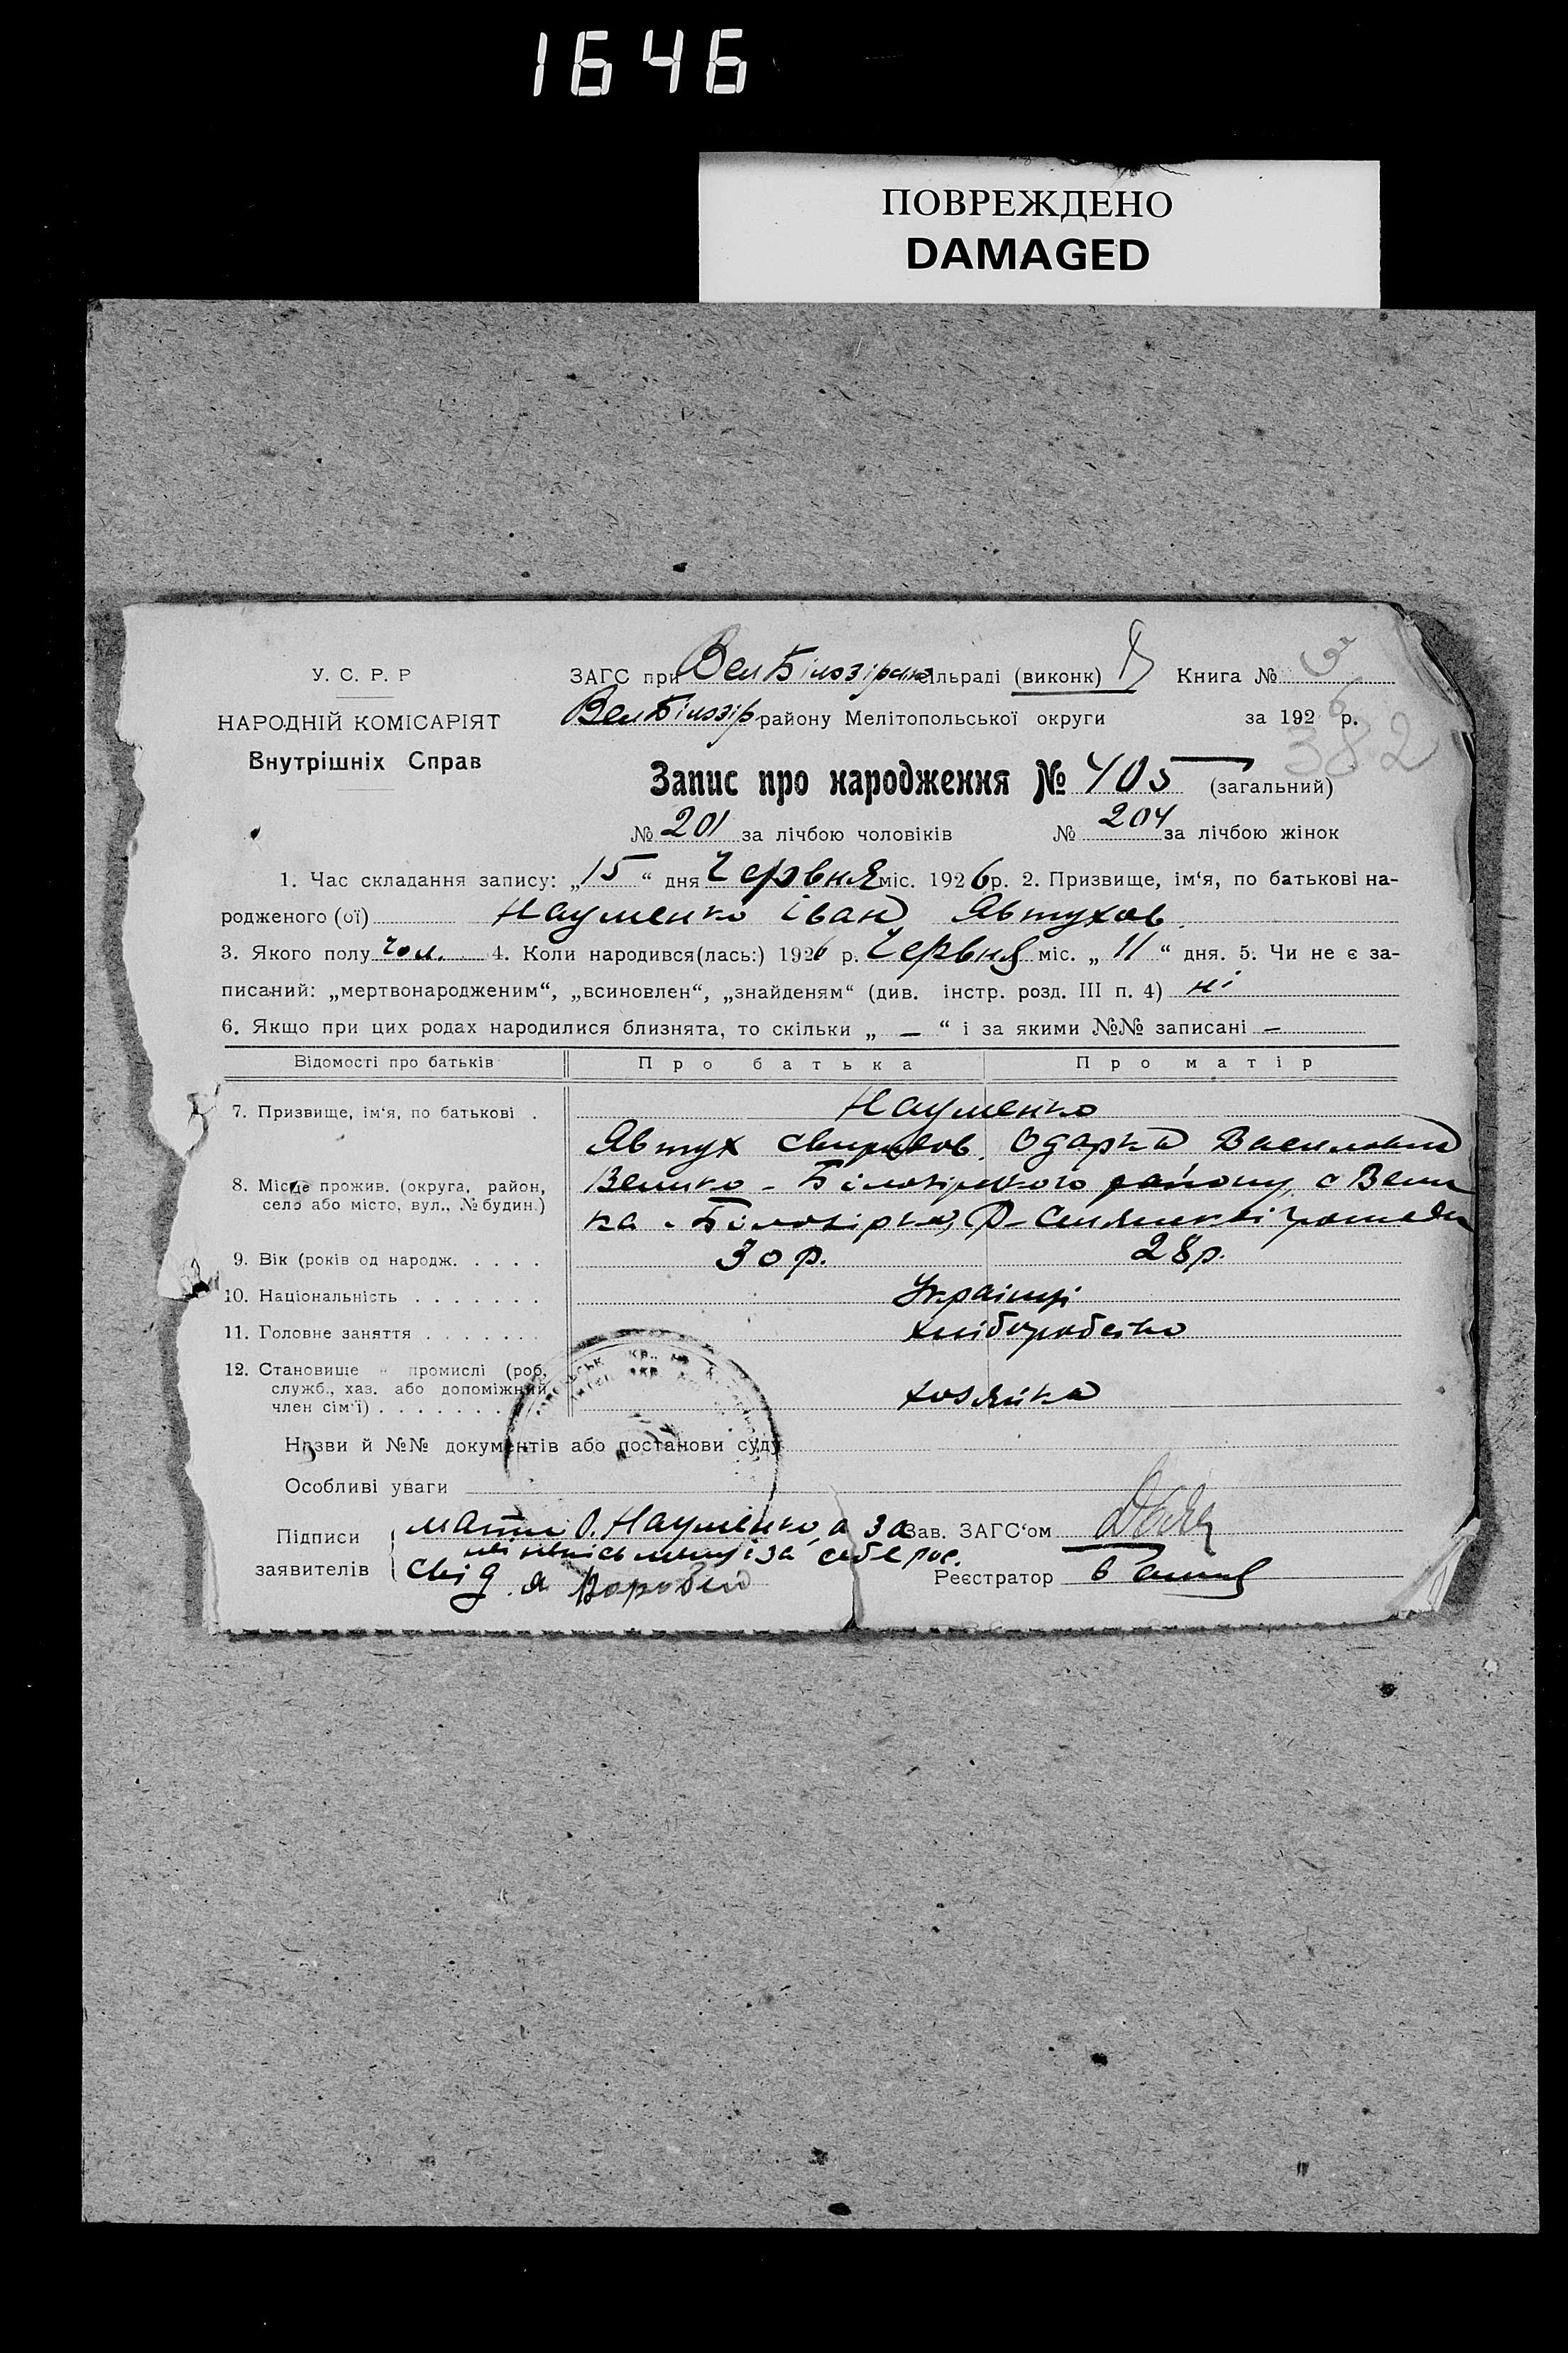 1646
ПОВРЕЖДЕНО
DAMAGED
У. С. Р. Р
НАРОДНІЙ КОМІСАРІЯТ
Внутрішніх Справ
ЗАГС при Вел Білозірська сільраді (виконк) Книга №
Вел Білозір району Мелітопольської округи за 1926 р.
382
Запис про народження № 405 (загальний)
№ 201 за лічбою чоловіків № 204 за лічбою жінок
1. Час складання запису: „15“ дня Червня міс. 1926 р. 2. Призвище, ім‘я, по батькові на-
родженого (ої) Науменко Іван Явтухов.
3. Якого полу чол. 4. Коли народився(лась:) 1926 р. Червня міс. „11“ дня. 5. Чи не є за-
писаний: „мертвонародженим“, „всиновлен“, „знайденям“ (див. інстр. розд. III п. 4) ні
6. Якщо при цих родах народилися близнята, то скільки „ — “ і за якими №№ записані —
Відомості про батьків Про батька Про матір
7. Призвище, ім‘я, по батькові . Науменко
Явтух Свиридов. Одарка Василовна
8. Місце прожив. (округа, район, Велико - Білозірского району, с Вели
село або місто, вул., № будин.) ка - Білозірка,
9. Вік (років од народж. . . . . 30 р. 28 р.
10. Національність . . . . . . . Українці
11. Головне заняття . . . . . . . хліборобство
12. Становище в промислі (роб.
служб., хаз. або допоміжний
член сім‘ї) . . . . . . . хозяїка
Назви й №№ документів або постанови суду
Особливі уваги
Підписи
заявителів
мати О. Науменко, а за
неписьменну і за себе рос.
свід. Я Воробей
Зав. ЗАГС‘ом
Реєстратор